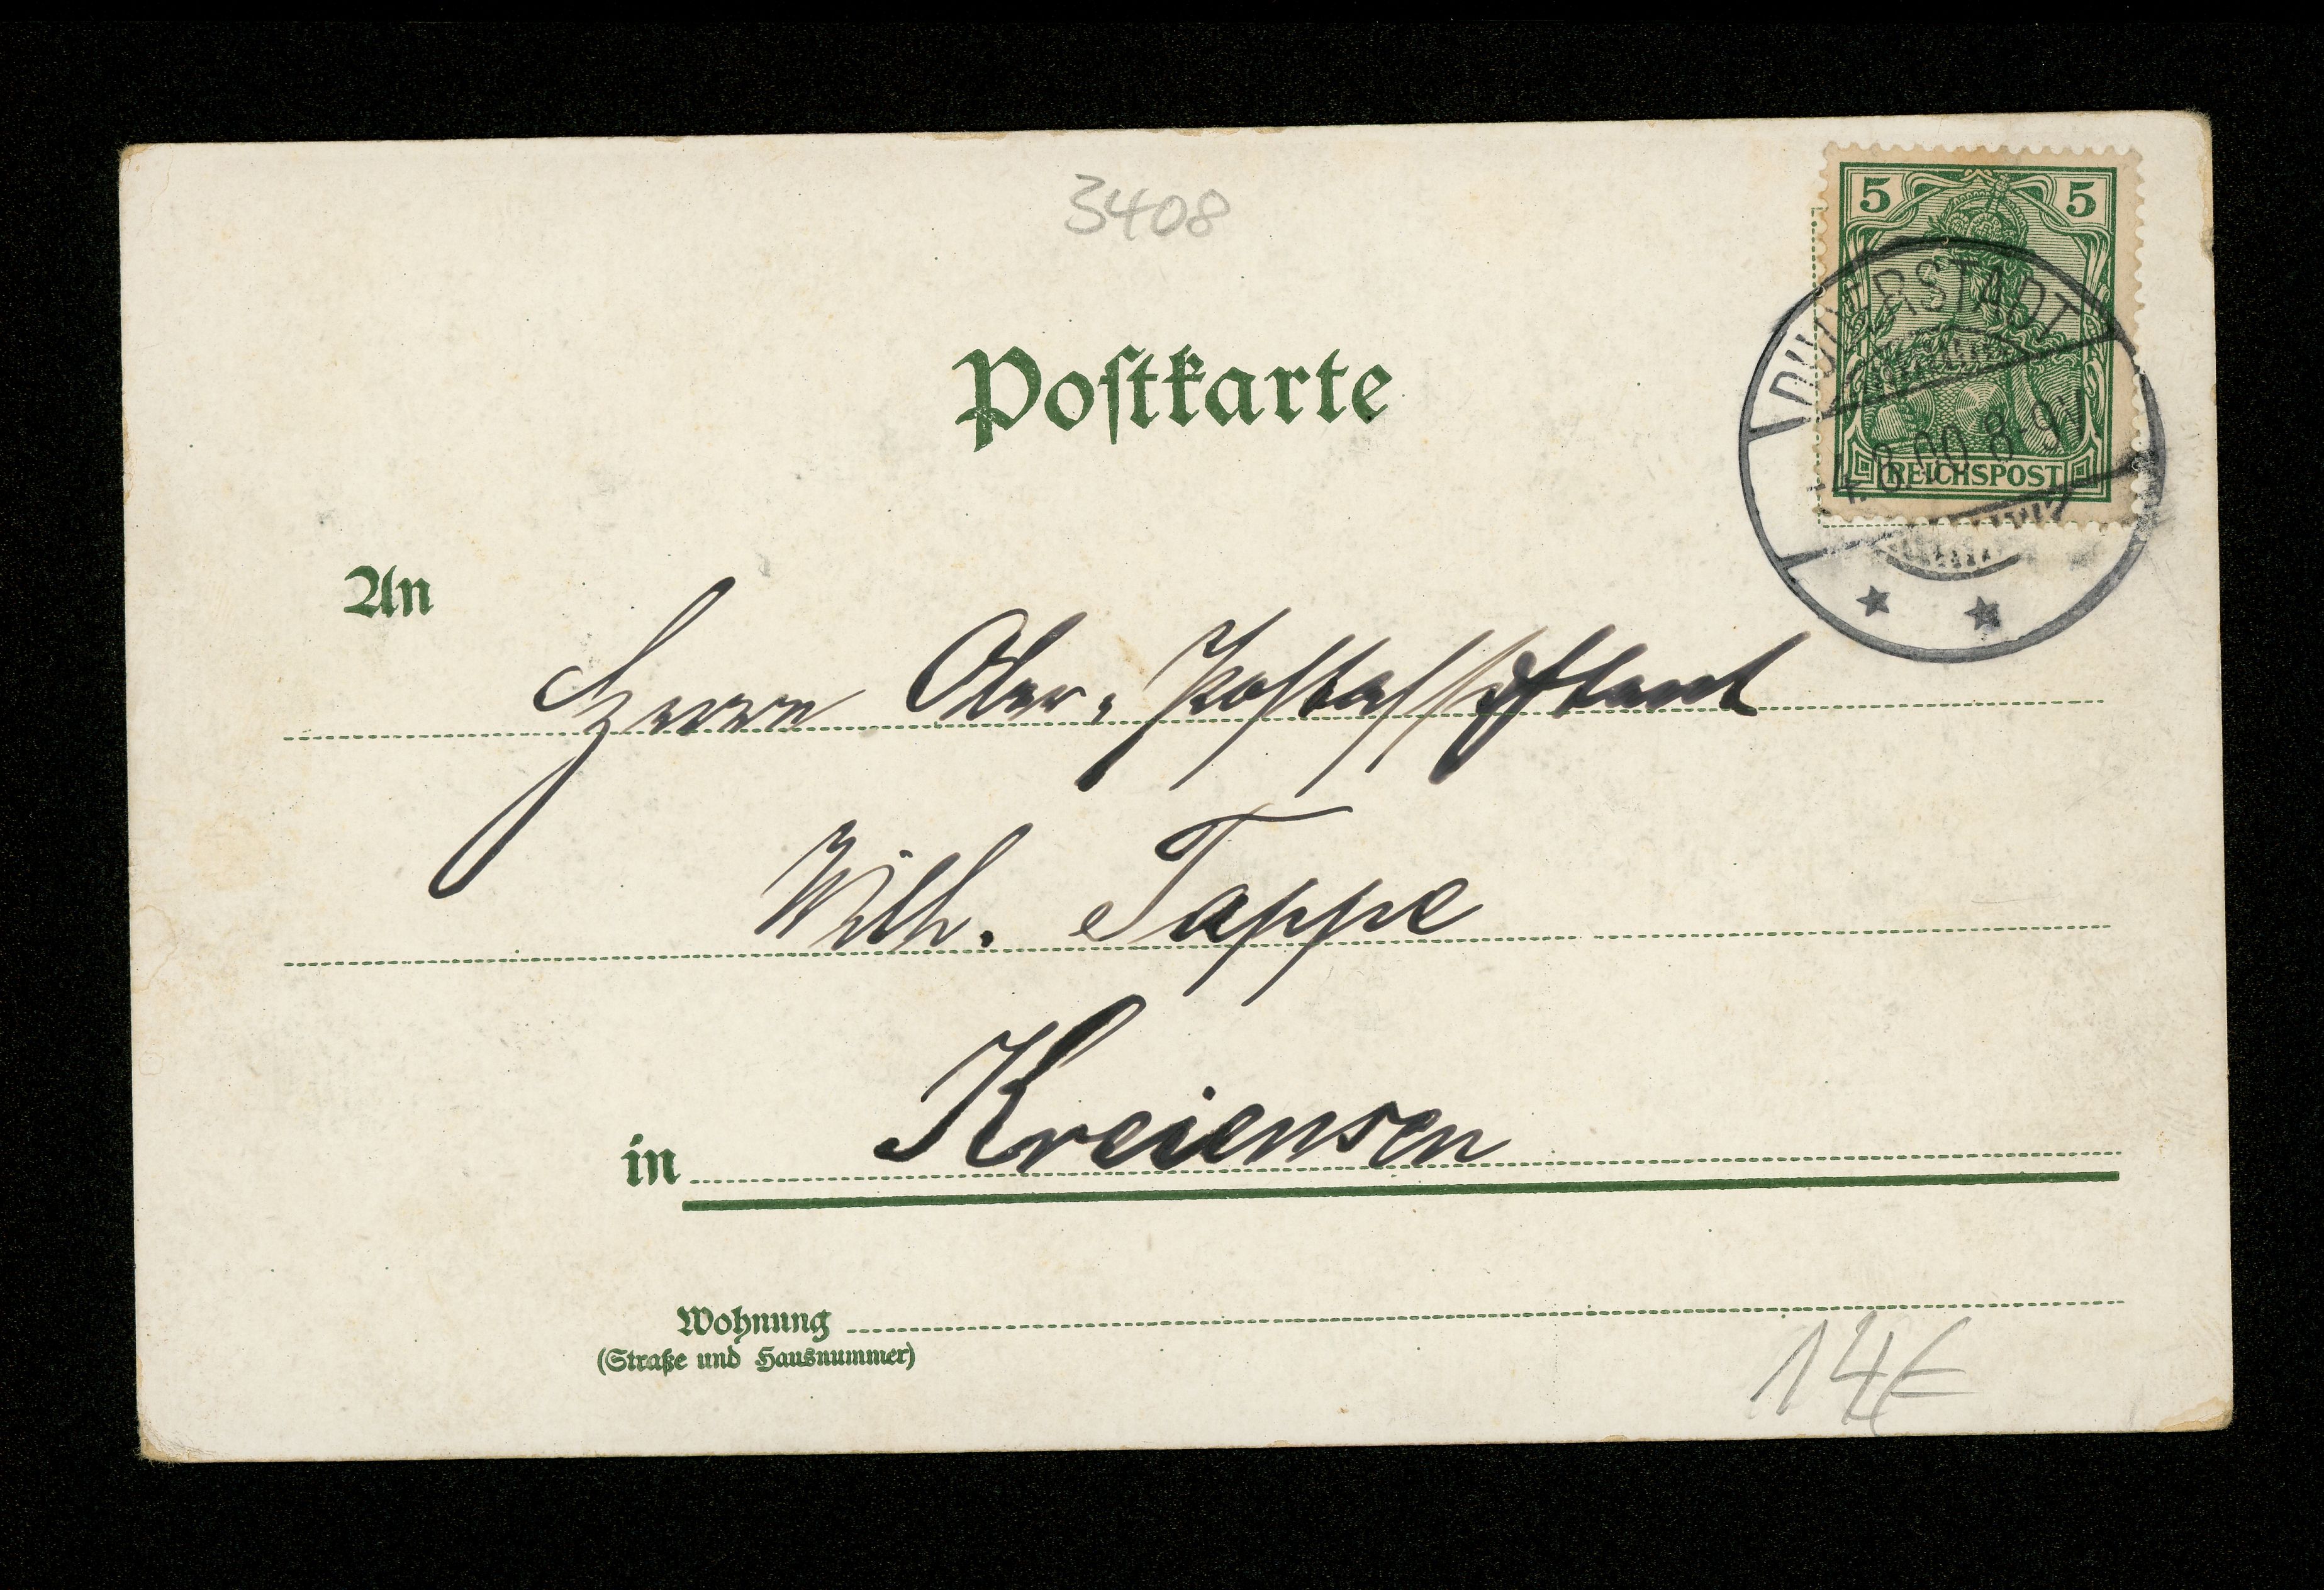 3408
5 5
REICHSPOST
DUDERSTADT
4.8.00.8-9V
Postkarte
An
Herrn Ober-Postassistent
Wilh. Tappe
in Kreiensen
Wohnung
(Straße und Hausnummer)
14€